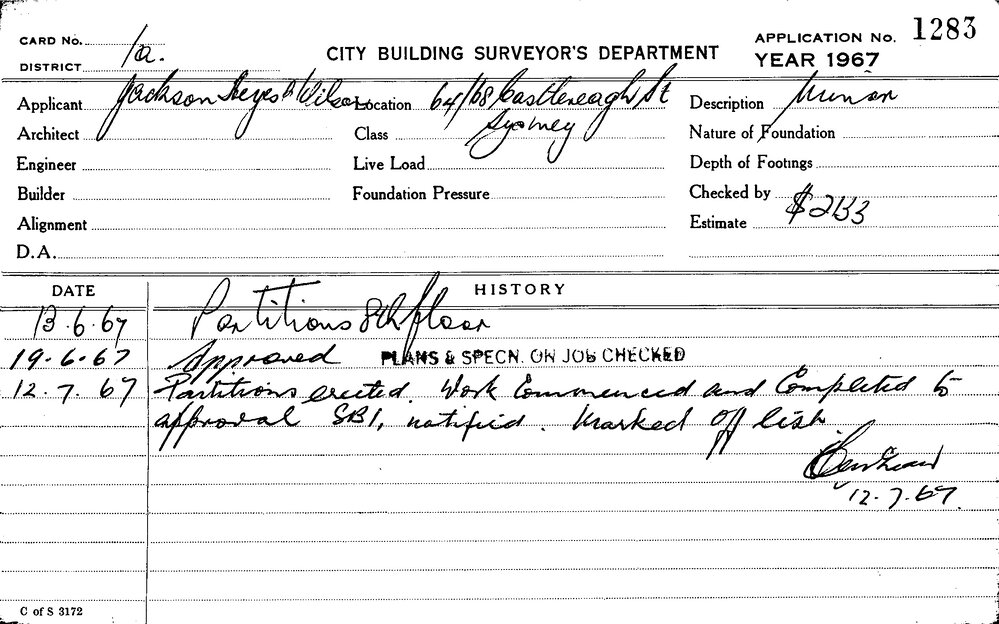 CARD No. 1a.
DISTRICT
CITY BUILDING SURVEYOR'S DEPARTMENT
APPLICATION No. 1283
YEAR 1967
Applicant Jackson Heyes & Wilson
Location 64/68 Castlereagh St
Sydney
Description Minor
Architect
Class
Nature of Foundation
Engineer
Live Load
Depth of Footings
Builder
Foundation Pressure
Checked by
Alignment
Estimate $2133
D.A.
DATE
HISTORY
13.6.67 Partitions 8th floor
19.6.67 Approved PLANS & SPECN. ON JOB CHECKED
12.7.67 Partitions erected. Work Commenced and Completed to
approval SBI, notified. Marked off list
12.7.67.
C of S 3172